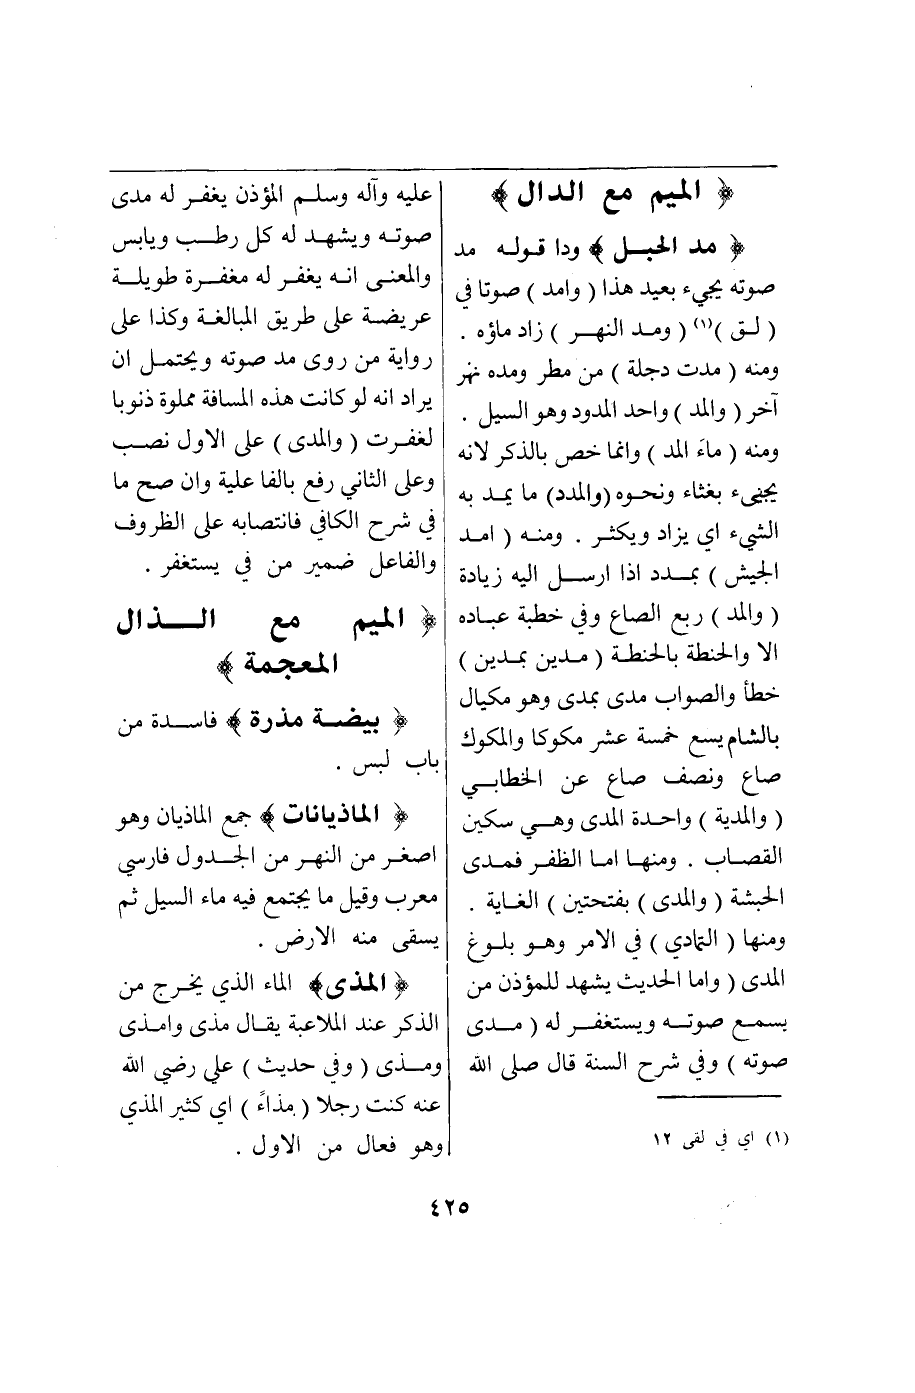 ﴿ الميم مع الدال ﴾
﴿ مد الحبـل ﴾ ودا قـولـه مد
صوته يجيء بعيد هذا ( وامد ) صوتا في
( لـق )(١) ( ومـد النهـر ) زاد ماؤه .
ومنه ( مدت دجلة ) من مطر ومده نهر
آخر ( والمد ) واحد المدود وهو السيل .
ومنه ( ماء المد ) وانما خص بالذكر لانه
يجيء بغثاء ونحـوه (والمدد) ما يمـد به
الشيء اي يزاد ويكثـر . ومنـه ( امـد
الجيش ) بمـدد اذا ارسـل اليه زيادة
( والمد ) ربع الصاع وفي خطبة عباده
الا والحنطة بالحنطـة ( مـدين بمـدين )
خطأ والصواب مدى بمدى وهو مكيال
بالشام يسع خمسة عشر مكوكا والمكوك
صاع ونصف صاع عن الخطابـي
( والمدية ) واحـدة المدى وهـي سكين
القصـاب . ومنهـا امـا الظفـر فمـدى
الحبشة ( والمدى ) بفتحتين ) الغـاية .
ومنها ( التمادي ) في الامر وهـو بلـوغ
المدى ( واما الحديث يشهد للمؤذن من
يسمـع صوتـه ويستغفـر له ( مـدى
صوته ) وفي شرح السنة قال صلى الله
(١) اي في لقى ١٢
عليه وآله وسلـم المؤذن يغفـر له مدى
صوتـه ويشهـد له كل رطـب ويابس
والمعنـى انـه يغفـر له مغفـرة طويلـة
عريضـة على طريق المبالغـة وكذا على
رواية من روى مد صوته ويحتمـل ان
يراد انه لو كانت هذه المسافة مملوة ذنوبا
لغفـرت ( والمدى ) على الاول نصـب
وعلى الثاني رفع بالفا علية وان صح ما
في شرح الكافي فانتصابه على الظروف
والفاعل ضمير من في يستغفر .
﴿ الميم مع الـذال
المعجمة ﴾
﴿ بيضـة مذرة ﴾ فاسـدة من
باب لبس .
﴿ الماذيانات ﴾ جمع الماذيان وهو
اصغر من النهر من الجـدول فارسي
معرب وقيل ما يجتمع فيه ماء السيل ثم
يسقى منه الارض .
﴿ المذى ﴾ الماء الذي يخرج من
الذكر عند الملاعبة يقـال مذى وامـذى
ومـذى ( وفي حديث ) علي رضي الله
عنه كنت رجلا ( مذاءً ) اي كثير المذي
وهو فعال من الاول .
٤٢٥